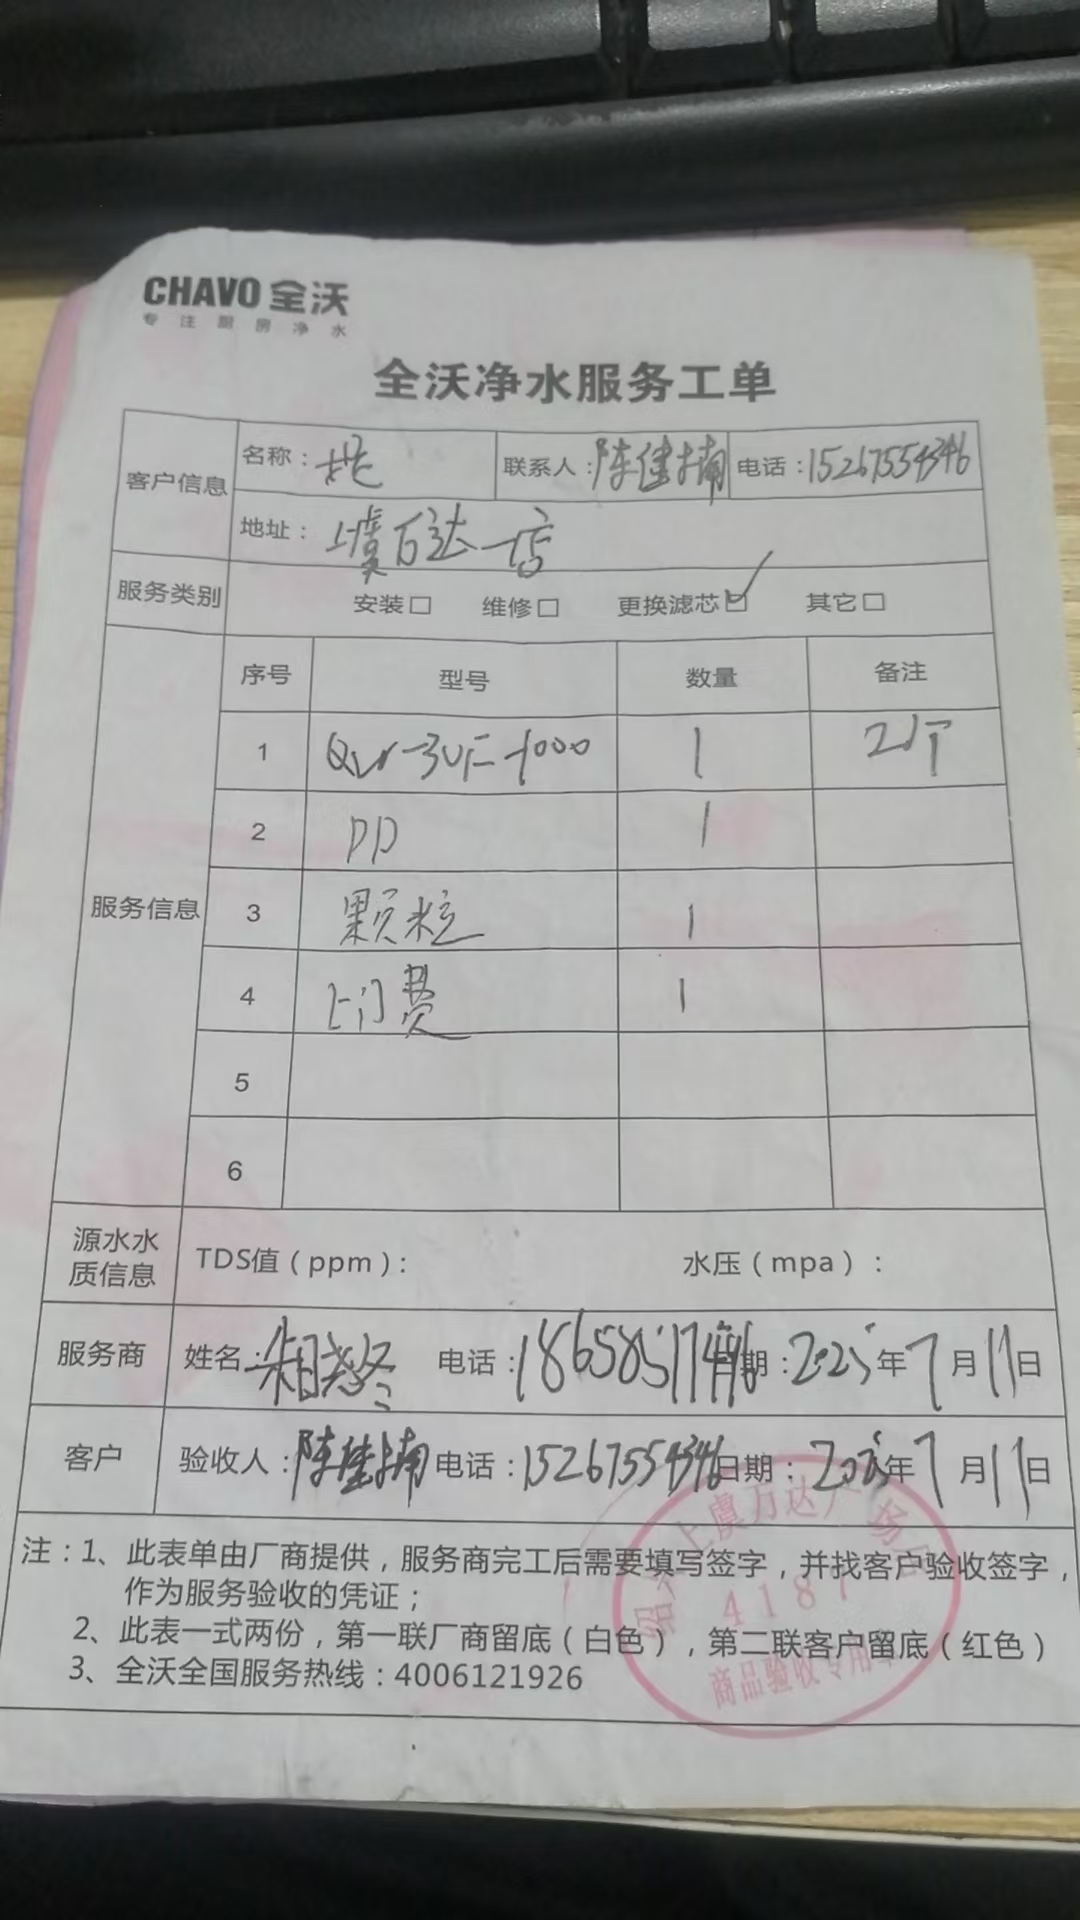 CHAVO 全沃
专注厨房净水
全沃净水服务工单
客户信息 名称： 联系人：陈佳楠 电话：15267554346
地址：上虞万达一店
服务类别 安装□ 维修□ 更换滤芯☑ 其它□
服务信息 序号 型号 数量 备注
1 QW-3UF-1000 1 2个
2 PP 1
3 颗粒 1
4 上门费 1
5
6
源水水质信息 TDS值（ppm）： 水压（mpa）：
服务商 姓名： 电话：18658517446 日期：2025年7月11日
客户 验收人：陈佳楠 电话：15267554346 日期：2025年7月11日
注：1、此表单由厂商提供，服务商完工后需要填写签字，并找客户验收签字，
作为服务验收的凭证；
2、此表一式两份，第一联厂商留底（白色），第二联客户留底（红色）
3、全沃全国服务热线：4006121926
上虞万达广场店
4187
商品验收专用章